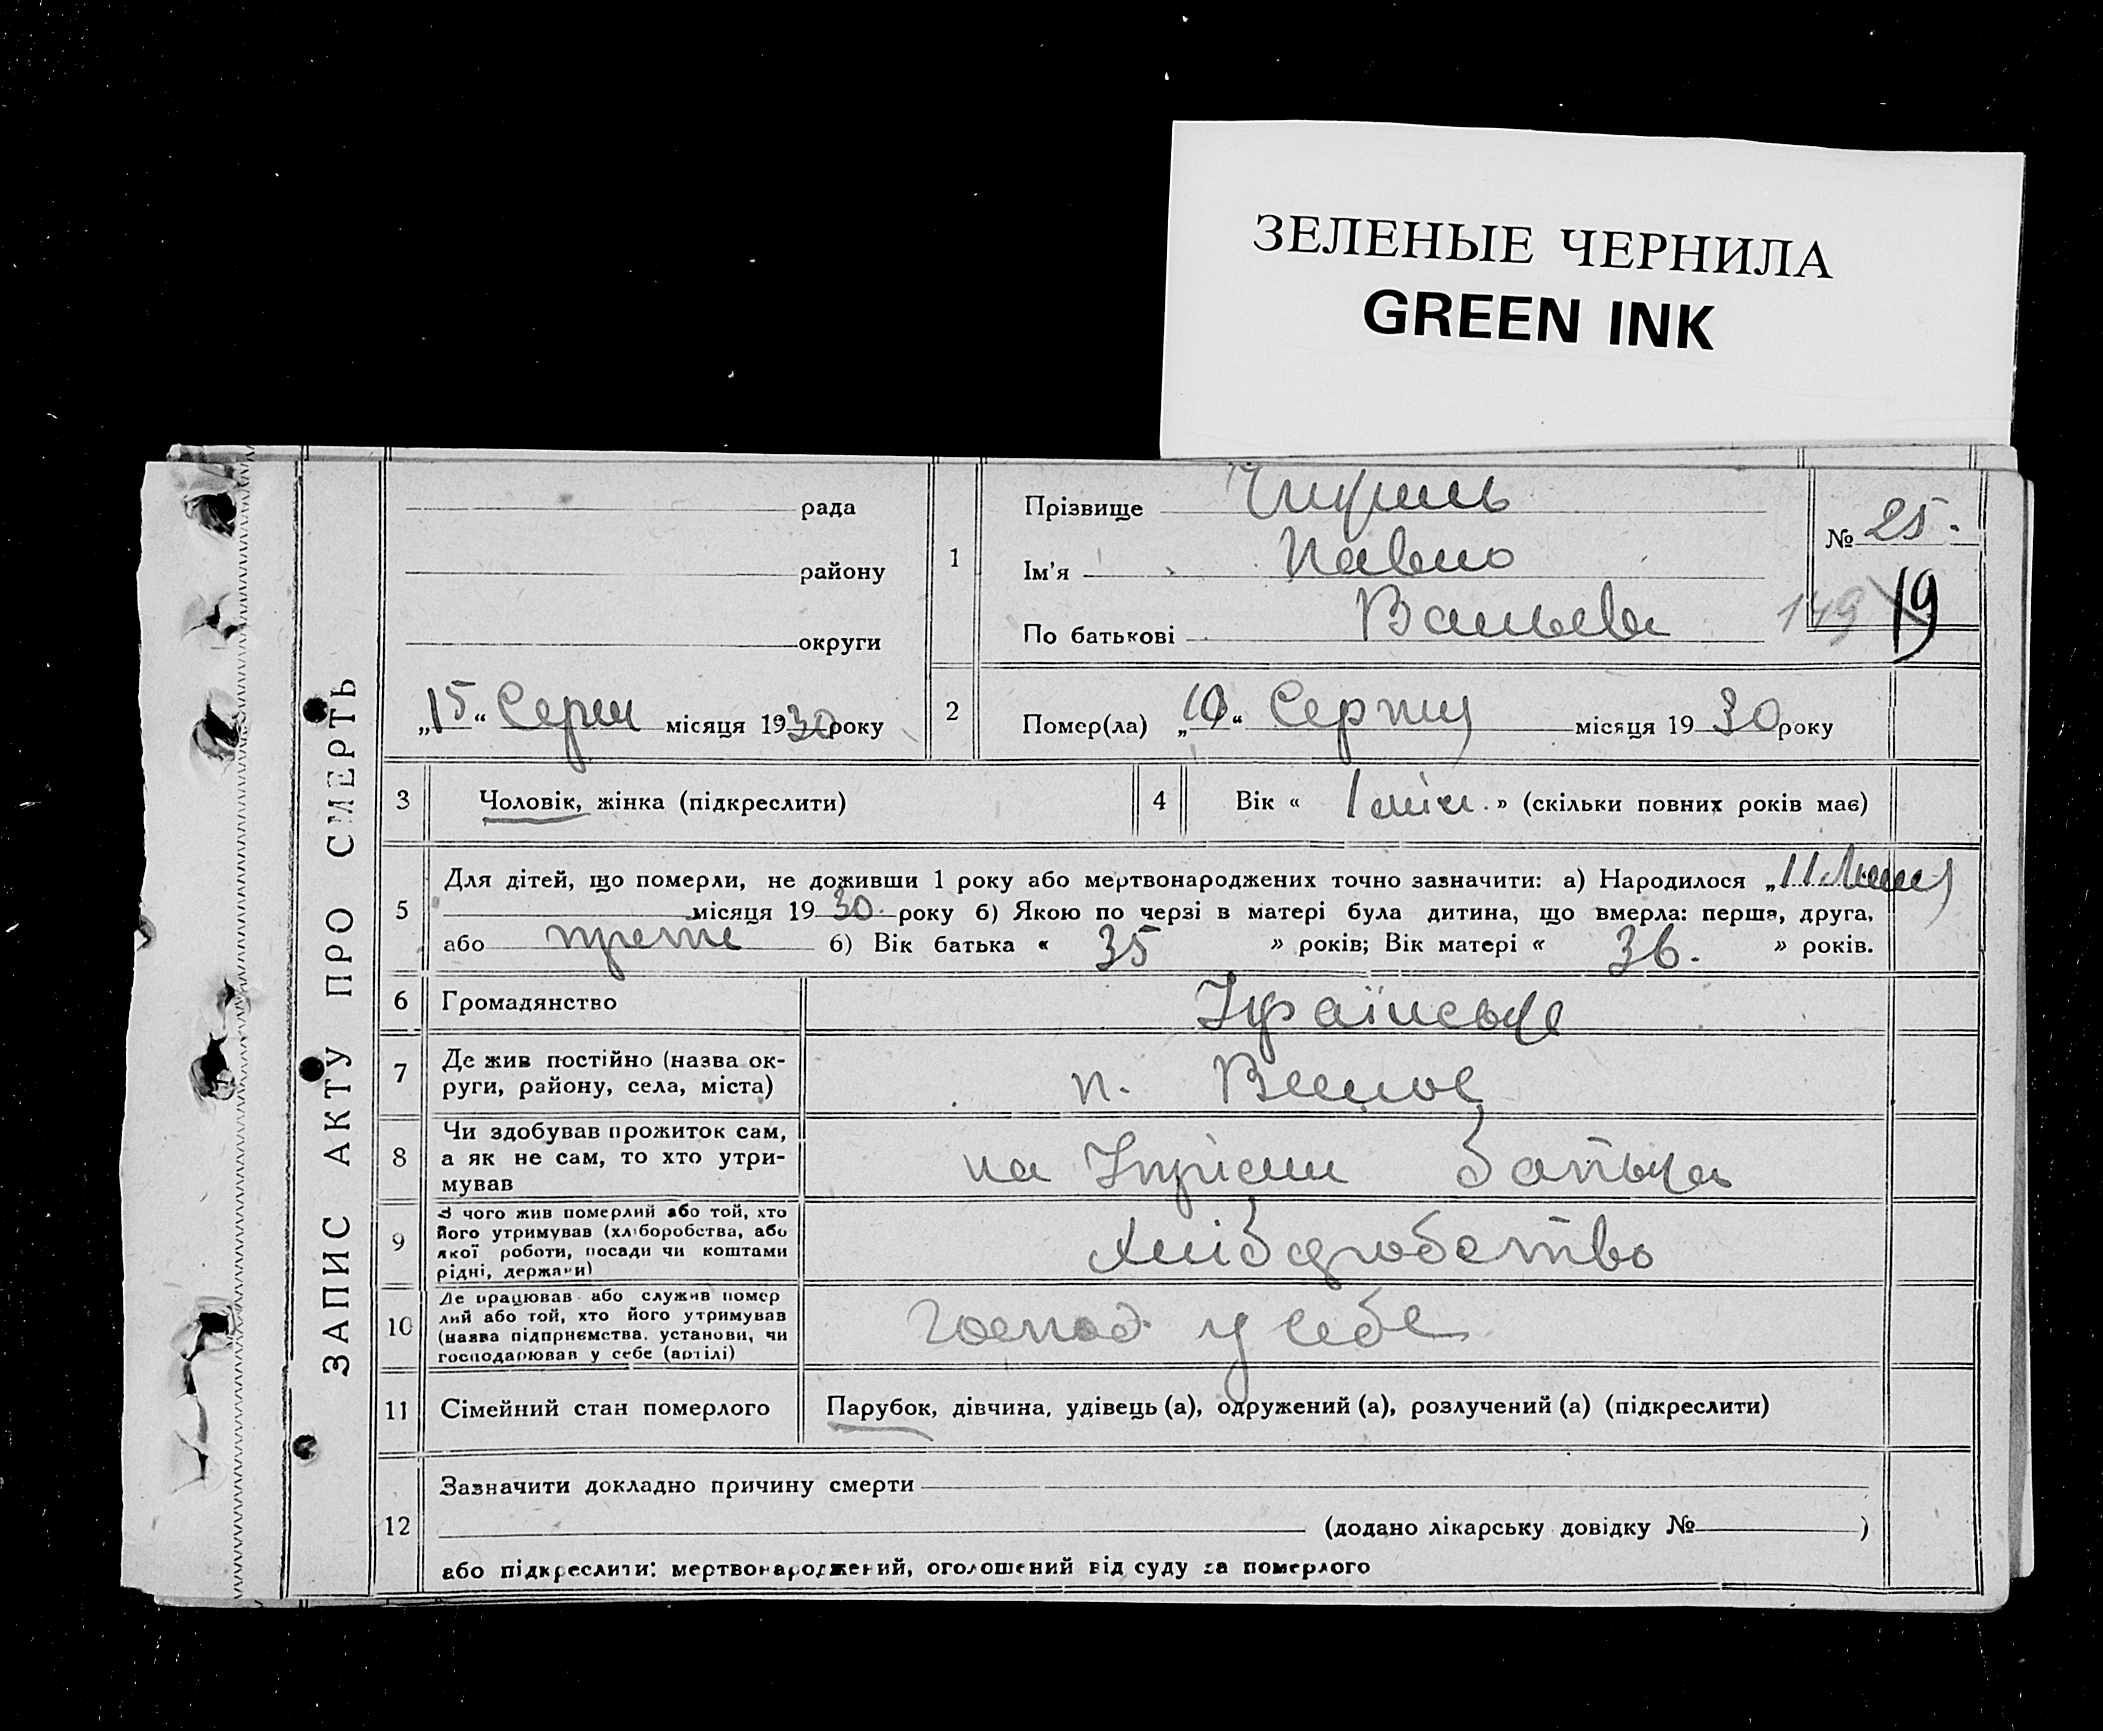 ЗЕЛЕНЫЕ ЧЕРНИЛА
GREEN INK
ЗАПИС АКТУ ПРО СМЕРТЬ
рада
району
округи
„15“ Серпн місяця 1930 року
1
Прізвище
Ім'я Павло
По батькові
№ 25.
149 19
2
Помер(ла) „10“ Серпня місяця 1930 року
3 Чоловік, жінка (підкреслити)
4 Вік « 1 міс. » (скільки повних років має)
5
Для дітей, що померли, не доживши 1 року або мертвонароджених точно зазначити: а) Народилося „11 Липня
місяця 1930 року б) Якою по черзі в матері була дитина, що вмерла: перша, друга,
або трете б) Вік батька « 35 » років; Вік матері « 36. » років.
6 Громадянство Українське
7
Де жив постійно (назва ок-
руги, району, села, міста)
8
Чи здобував прожиток сам,
а як не сам, то хто утри-
мував
на батька
9
З чого жив померлий або той, хто
його утримував (хліборобства, або
якої роботи, посади чи коштами
рідні, держави)
хліборобство
10
Де працював або служив помер
лий або той, хто його утримував
(назва підприємства, установи, чи
господарював у себе (артілі)
господ. у себе
11 Сімейний стан померлого Парубок, дівчина, удівець (а), одружений (а), розлучений (а) (підкреслити)
12
Зазначити докладно причину смерти
(додано лікарську довідку № )
або підкреслити: мертвонароджений, оголошений від суду за померлого